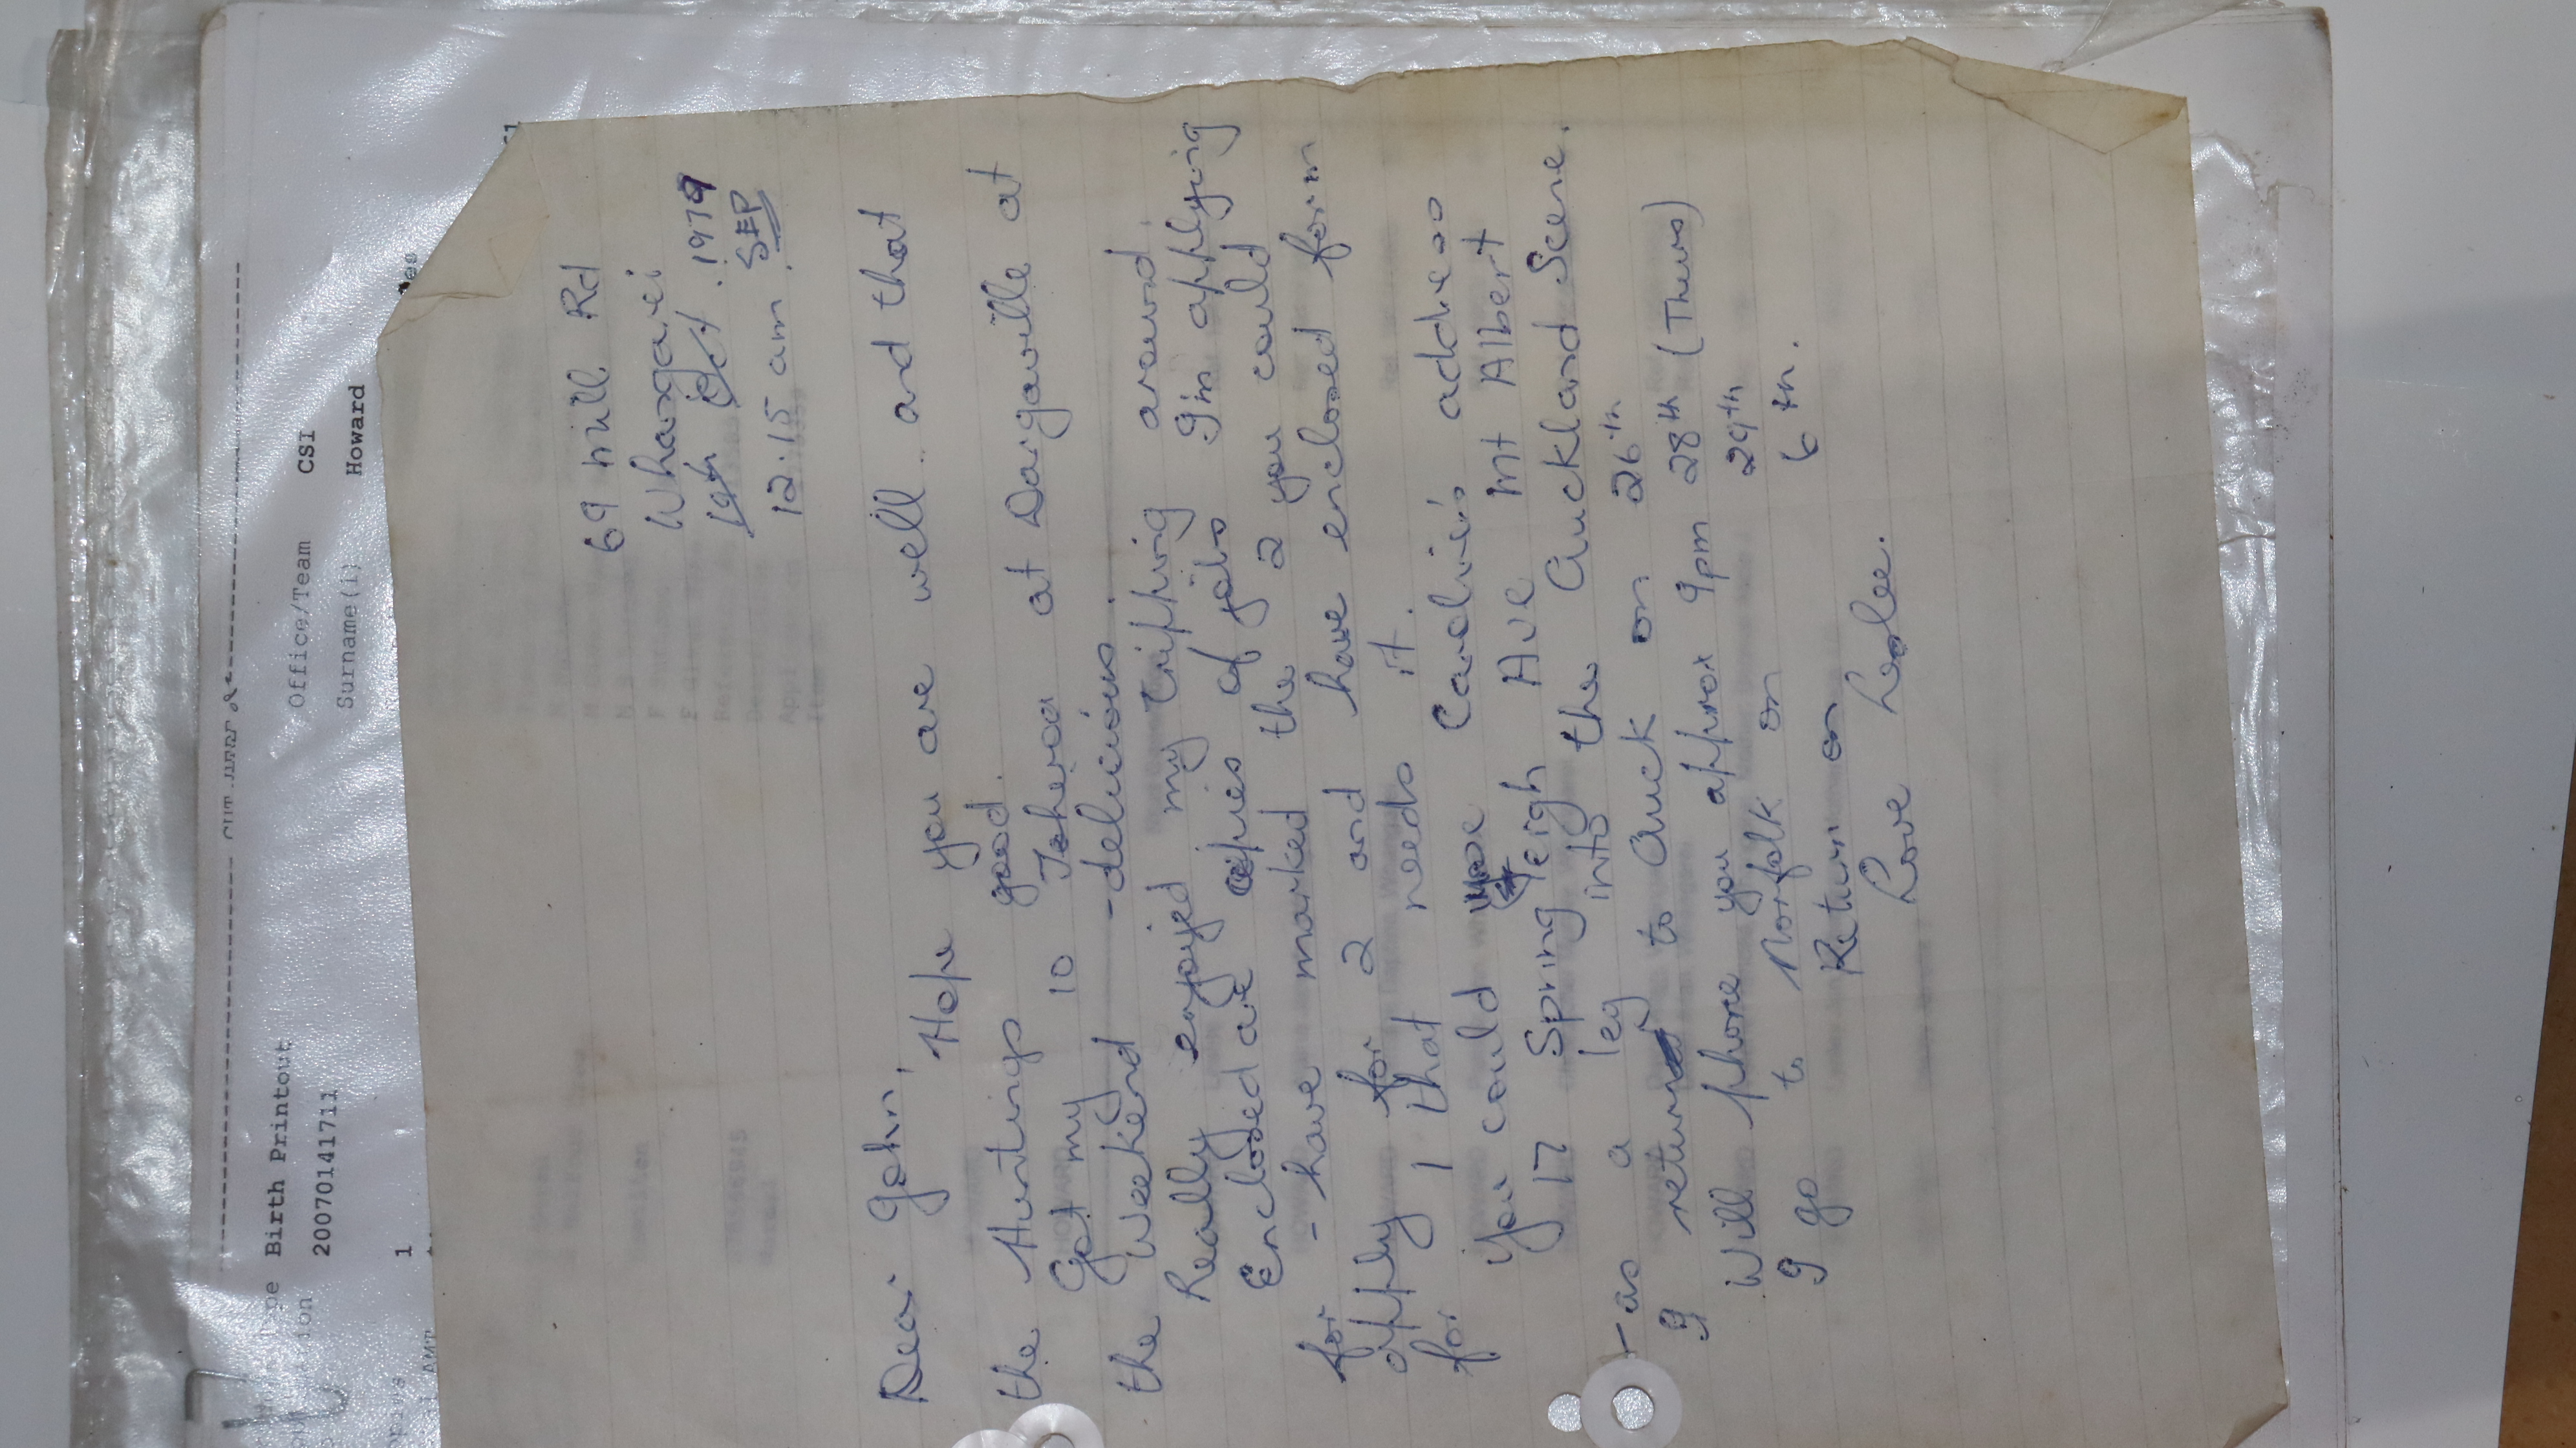 Birth Printout
2007014171 1
Office/Team CSI
Surname(i) Howard
1
69 Mill Rd
Whangarei
19th Oct. 1979
SEP
12.15 am.
Dear John,
Hope you are well and that
the Huntings good.
Got my 10 Toheroa at Dargaville at
the Weekend - delicious.
Really enjoyed my tripping around.
Enclosed are copies of jobs I'm applying
for - have marked the 2 you could
apply for 2 and have enclosed form
for 1 that needs it.
You could use Carolin's address
17 Spring leigh Ave Mt Albert
- as a leg into the Auckland Scene.
I return to Auck on 26th
Will phone you approx 9pm 28th (Thurs)
I go to Norfolk on 29th
Return on 6th.
Love Leslee.